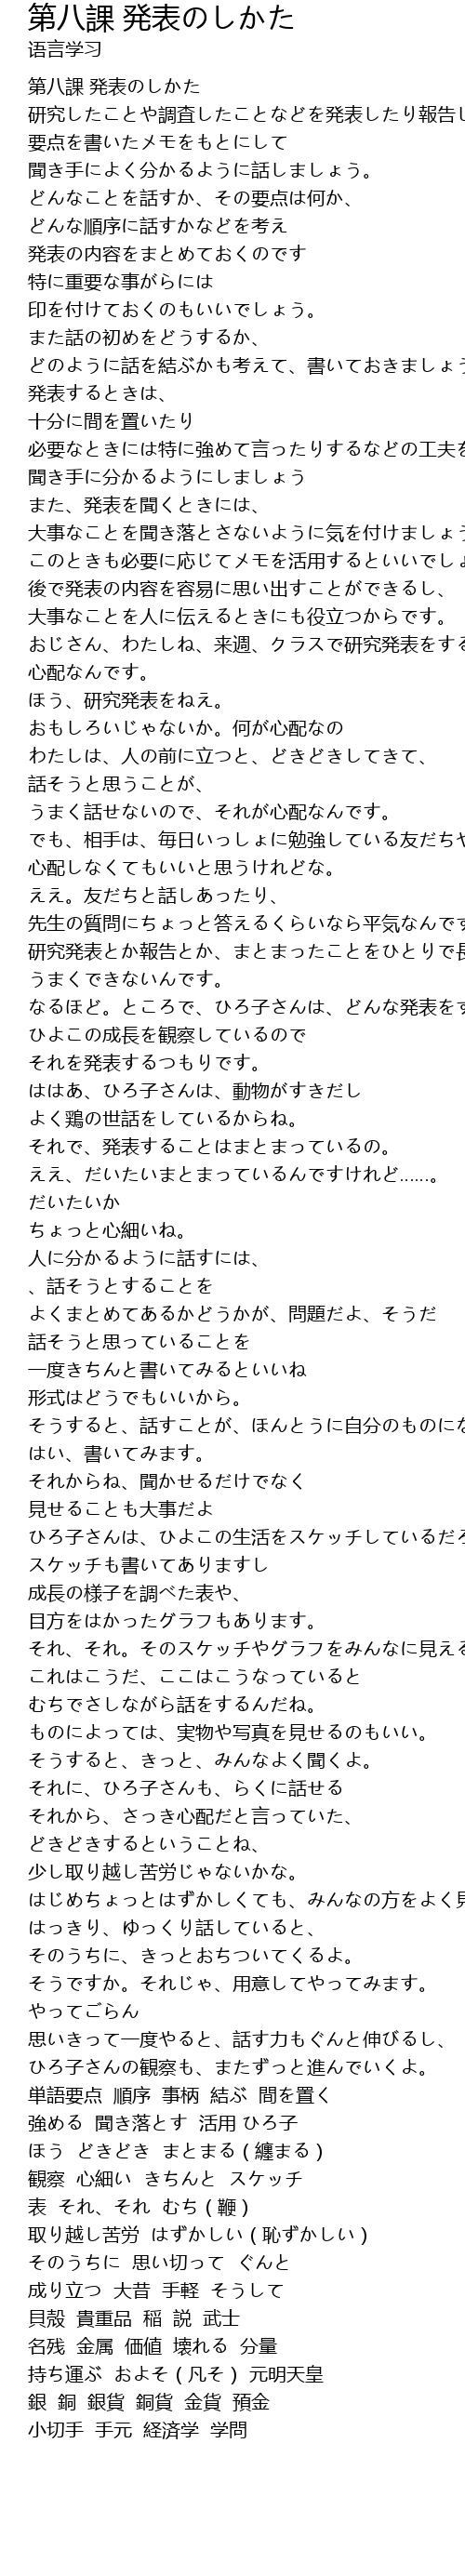 第八課 発表のしかた
语言学习
第八課 発表のしかた
研究したことや調査したことなどを発表したり報告し
要点を書いたメモをもとにして
聞き手によく分かるように話しましょう。
どんなことを話すか、その要点は何か、
どんな順序に話すかなどを考え
発表の内容をまとめておくのです
特に重要な事がらには
印を付けておくのもいいでしょう。
また話の初めをどうするか、
どのように話を結ぶかも考えて、書いておきましょう
発表するときは、
十分に間を置いたり
必要なときには特に強めて言ったりするなどの工夫を
聞き手に分かるようにしましょう
また、発表を聞くときには、
大事なことを聞き落とさないように気を付けましょう
このときも必要に応じてメモを活用するといいでしょ
後で発表の内容を容易に思い出すことができるし、
大事なことを人に伝えるときにも役立つからです。
おじさん、わたしね、来週、クラスで研究発表をする
心配なんです。
ほう、研究発表をねえ。
おもしろいじゃないか。何が心配なの
わたしは、人の前に立つと、どきどきしてきて、
話そうと思うことが、
うまく話せないので、それが心配なんです。
でも、相手は、毎日いっしょに勉強している友だちや
心配しなくてもいいと思うけれどな。
ええ。友だちと話しあったり、
先生の質問にちょっと答えるくらいなら平気なんです
研究発表とか報告とか、まとまったことをひとりで長
うまくできないんです。
なるほど。ところで、ひろ子さんは、どんな発表をす
ひよこの成長を観察しているので
それを発表するつもりです。
ははあ、ひろ子さんは、動物がすきだし
よく鶏の世話をしているからね。
それで、発表することはまとまっているの。
ええ、だいたいまとまっているんですけれど......。
だいたいか
ちょっと心細いね。
人に分かるように話すには、
、話そうとすることを
よくまとめてあるかどうかが、問題だよ、そうだ
話そうと思っていることを
一度きちんと書いてみるといいね
形式はどうでもいいから。
そうすると、話すことが、ほんとうに自分のものにな
はい、書いてみます。
それからね、聞かせるだけでなく
見せることも大事だよ
ひろ子さんは、ひよこの生活をスケッチしているだろ
スケッチも書いてありますし
成長の様子を調べた表や、
目方をはかったグラフもあります。
それ、それ。そのスケッチやグラフをみんなに見える
これはこうだ、ここはこうなっていると
むちでさしながら話をするんだね。
ものによっては、実物や写真を見せるのもいい。
そうすると、きっと、みんなよく聞くよ。
それに、ひろ子さんも、らくに話せる
それから、さっき心配だと言っていた、
どきどきするということね、
少し取り越し苦労じゃないかな。
はじめちょっとはずかしくても、みんなの方をよく見
はっきり、ゆっくり話していると、
そのうちに、きっとおちついてくるよ。
そうですか。それじゃ、用意してやってみます。
やってごらん
思いきって一度やると、話す力もぐんと伸びるし、
ひろ子さんの観察も、またずっと進んでいくよ。
単語要点 順序 事柄 結ぶ 間を置く
強める 聞き落とす 活用 ひろ子
ほう どきどき まとまる ( 纏まる )
観察 心細い きちんと スケッチ
表 それ、それ むち ( 鞭 )
取り越し苦労 はずかしい ( 恥ずかしい )
そのうちに 思い切って ぐんと
成り立つ 大昔 手軽 そうして
貝殻 貴重品 稲 説 武士
名残 金属 価値 壊れる 分量
持ち運ぶ およそ ( 凡そ ) 元明天皇
銀 銅 銀貨 銅貨 金貨 預金
小切手 手元 経済学 学問